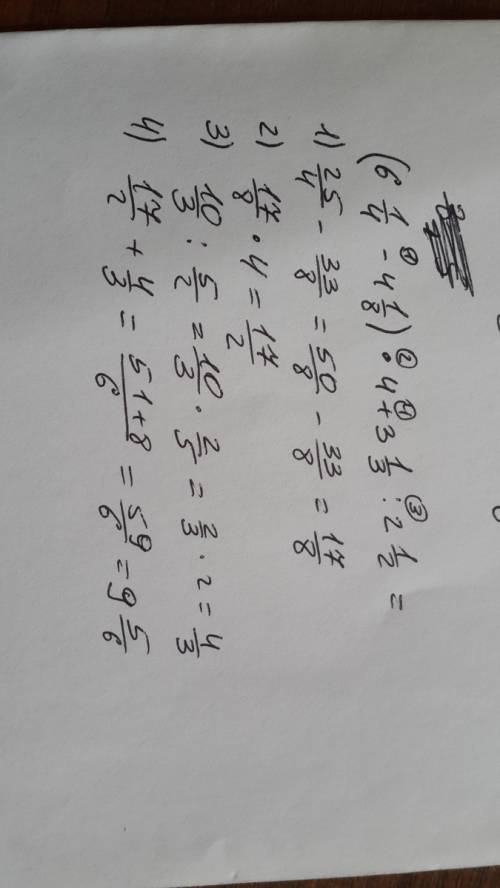 (6 1/4 -① 4 1/8) ·② 4 +④ 3 1/3 :③ 2 1/2 =
1) 25/4 - 33/8 = 50/8 - 33/8 = 17/8
2) 17/8 · 4 = 17/2
3) 10/3 : 5/2 = 10/3 · 2/5 = 2/3 · 2 = 4/3
4) 17/2 + 4/3 = 51+8/6 = 59/6 = 9 5/6